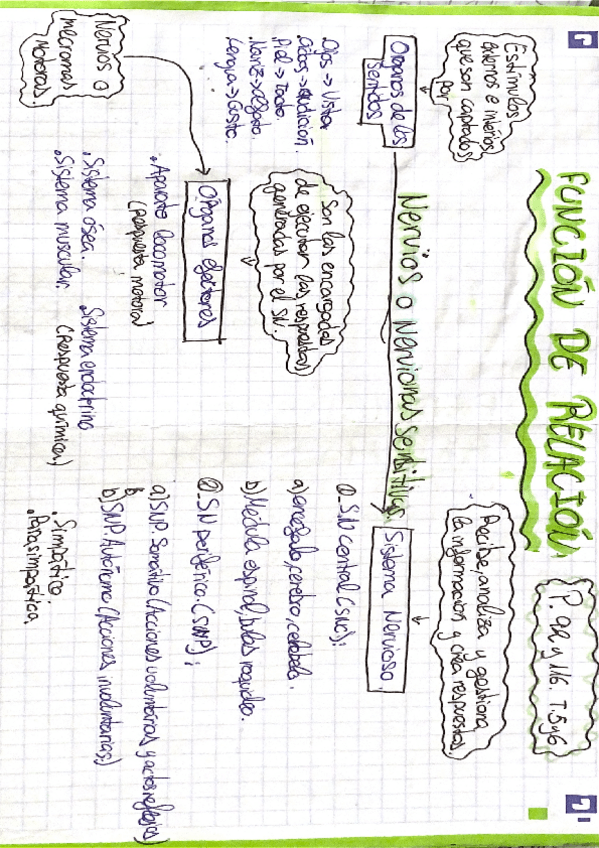 FUNCIÓN DE RELACIÓN
P. 92 y 116. T.5y6
Estímulos
externos e internos
que son captados
por
Organos de los
sentidos
.Ojos → Vista
.Oídos → Audición.
.Piel → Tacto.
.Nariz → Olfato.
.Lengua → Gusto.
Nervios o Neuronas sensitivas
Recibe, analiza y gestiona
la información y crea respuestas.
Sistema Nervioso.
① SN central (SNC):
a) encéfalo, cerebro, cerebelo.
b) Médula espinal, bulbo raquídeo.
② SN periférico (SNP):
a) SNP. Somático (Acciones voluntarias y actos reflejos)
b) SNP. Autónomo (Acciones involuntarias)
. Simpático
. Parasimpático.
Son los encargados
de ejecutar las respuestas
generadas por el SN.
Órganos efectores
. Aparato locomotor
(Respuesta motora)
. Sistema ósea.
. Sistema muscular.
Sistema endocrino
(Respuesta química)
Nervios o
Motoras.